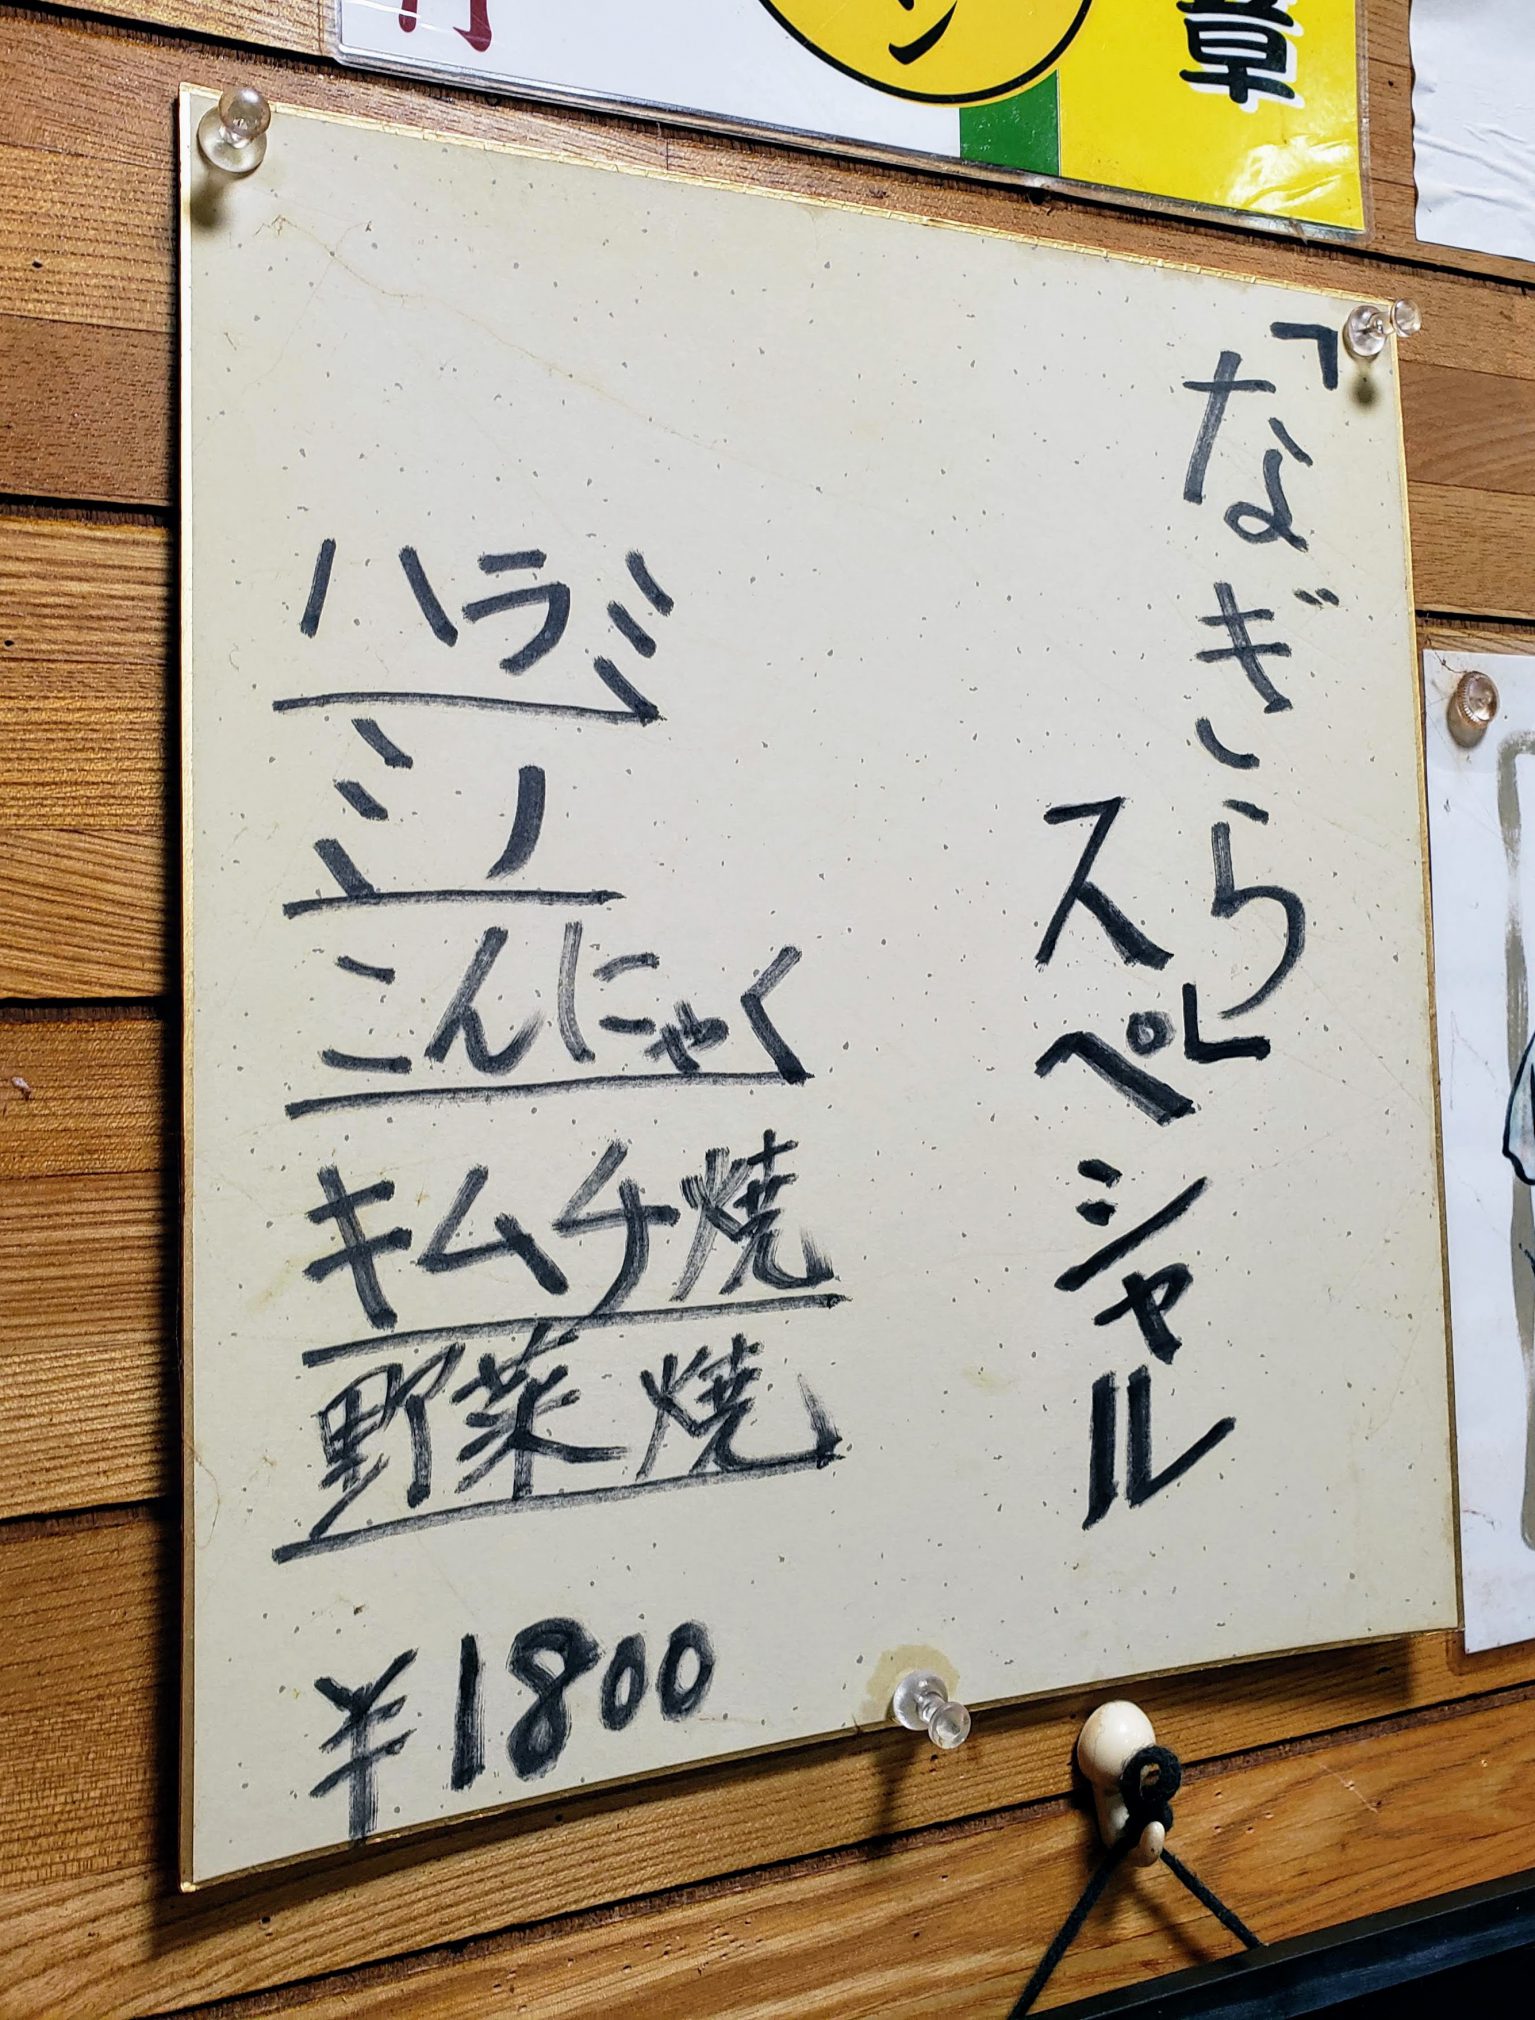 ン
章
「なぎら」
スペシャル
ハラミ
ミノ
こんにゃく
キムチ焼
野菜焼
¥1800